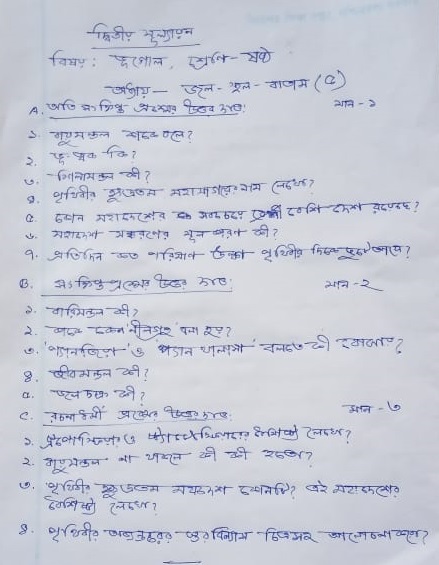 দ্বিতীয় মূল্যায়ন
বিষয়: ভূগোল, শ্রেণি - ষষ্ঠ
অধ্যায় — জল - স্থল - বাতাস (৫)
A. অতি সংক্ষিপ্ত প্রশ্নের উত্তর দাও: মান - ১
১. বায়ুমন্ডল কাকে বলে?
২. ভূ-ত্বক কি?
৩. শিলামন্ডল কী?
৪. পৃথিবীর ক্ষুদ্রতম মহাসাগরের নাম লেখো?
৫. কোন মহাদেশের সবচেয়ে বেশি দেশ রয়েছে?
৬. মহাদেশ সঞ্চরণের মূল কারণ কী?
৭. প্রতিদিন কত পরিমাণ উল্কা পৃথিবীর দিকে ছুটে আসে?
B. সংক্ষিপ্ত প্রশ্নের উত্তর দাও: মান - ২
১. বারিমন্ডল কী?
২. কাকে কেন নীলগ্রহ বলা হয়?
৩. 'প্যানজিয়া' ও 'প্যানথালাসা' বলতে কী বোঝায়?
৪. জীবমন্ডল কী?
৫. জলচক্র কী?
C. রচনাধর্মী প্রশ্নের উত্তর দাও: মান - ৩
১. ট্রপোস্ফিয়ার ও স্ট্র্যাটোস্ফিয়ারের বৈশিষ্ট্য লেখো?
২. বায়ুমন্ডল না থাকলে কী কী হতো?
৩. পৃথিবীর ক্ষুদ্রতম মহাদেশ কোনটি? এই মহাদেশের
বৈশিষ্ট্য লেখো?
৪. পৃথিবীর অভ্যন্তরের স্তরবিন্যাস চিত্রসহ আলোচনা করো?